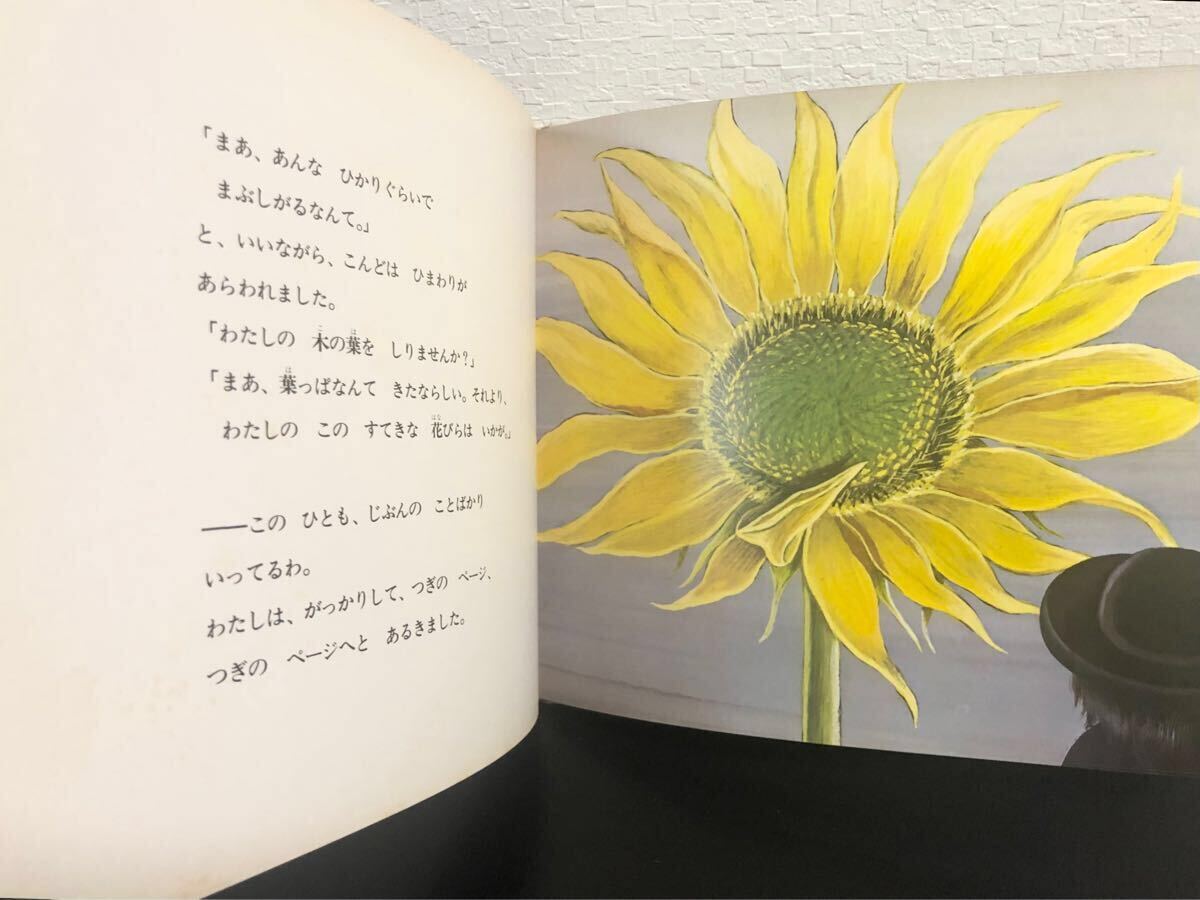 「まあ、あんな　ひかりぐらいで
まぶしがるなんて。」
と、いいながら、こんどは　ひまわりが
あらわれました。
「わたしの　木の葉を　しりませんか？」
「まあ、葉っぱなんて　きたならしい。それより、
わたしの　この　すてきな　花びらは　いかが。」
──この　ひとも、じぶんの　ことばかり
いってるわ。
わたしは、がっかりして、つぎの　ページ、
つぎの　ページへと　あるきました。